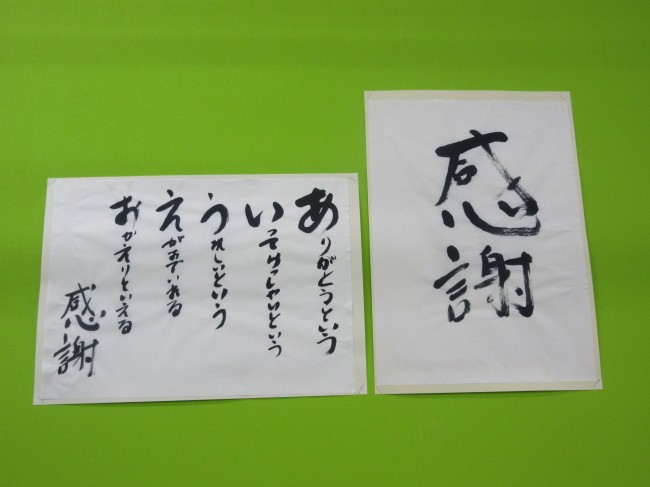 感謝
ありがとうという
いってらっしゃいという
うれしいという
えがおでいれる
おかえりといえる
感謝